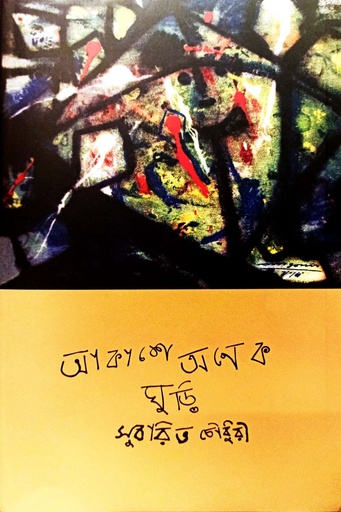 আকাশে অনেক
ঘুড়ি
সুবারিত চৌধুরী